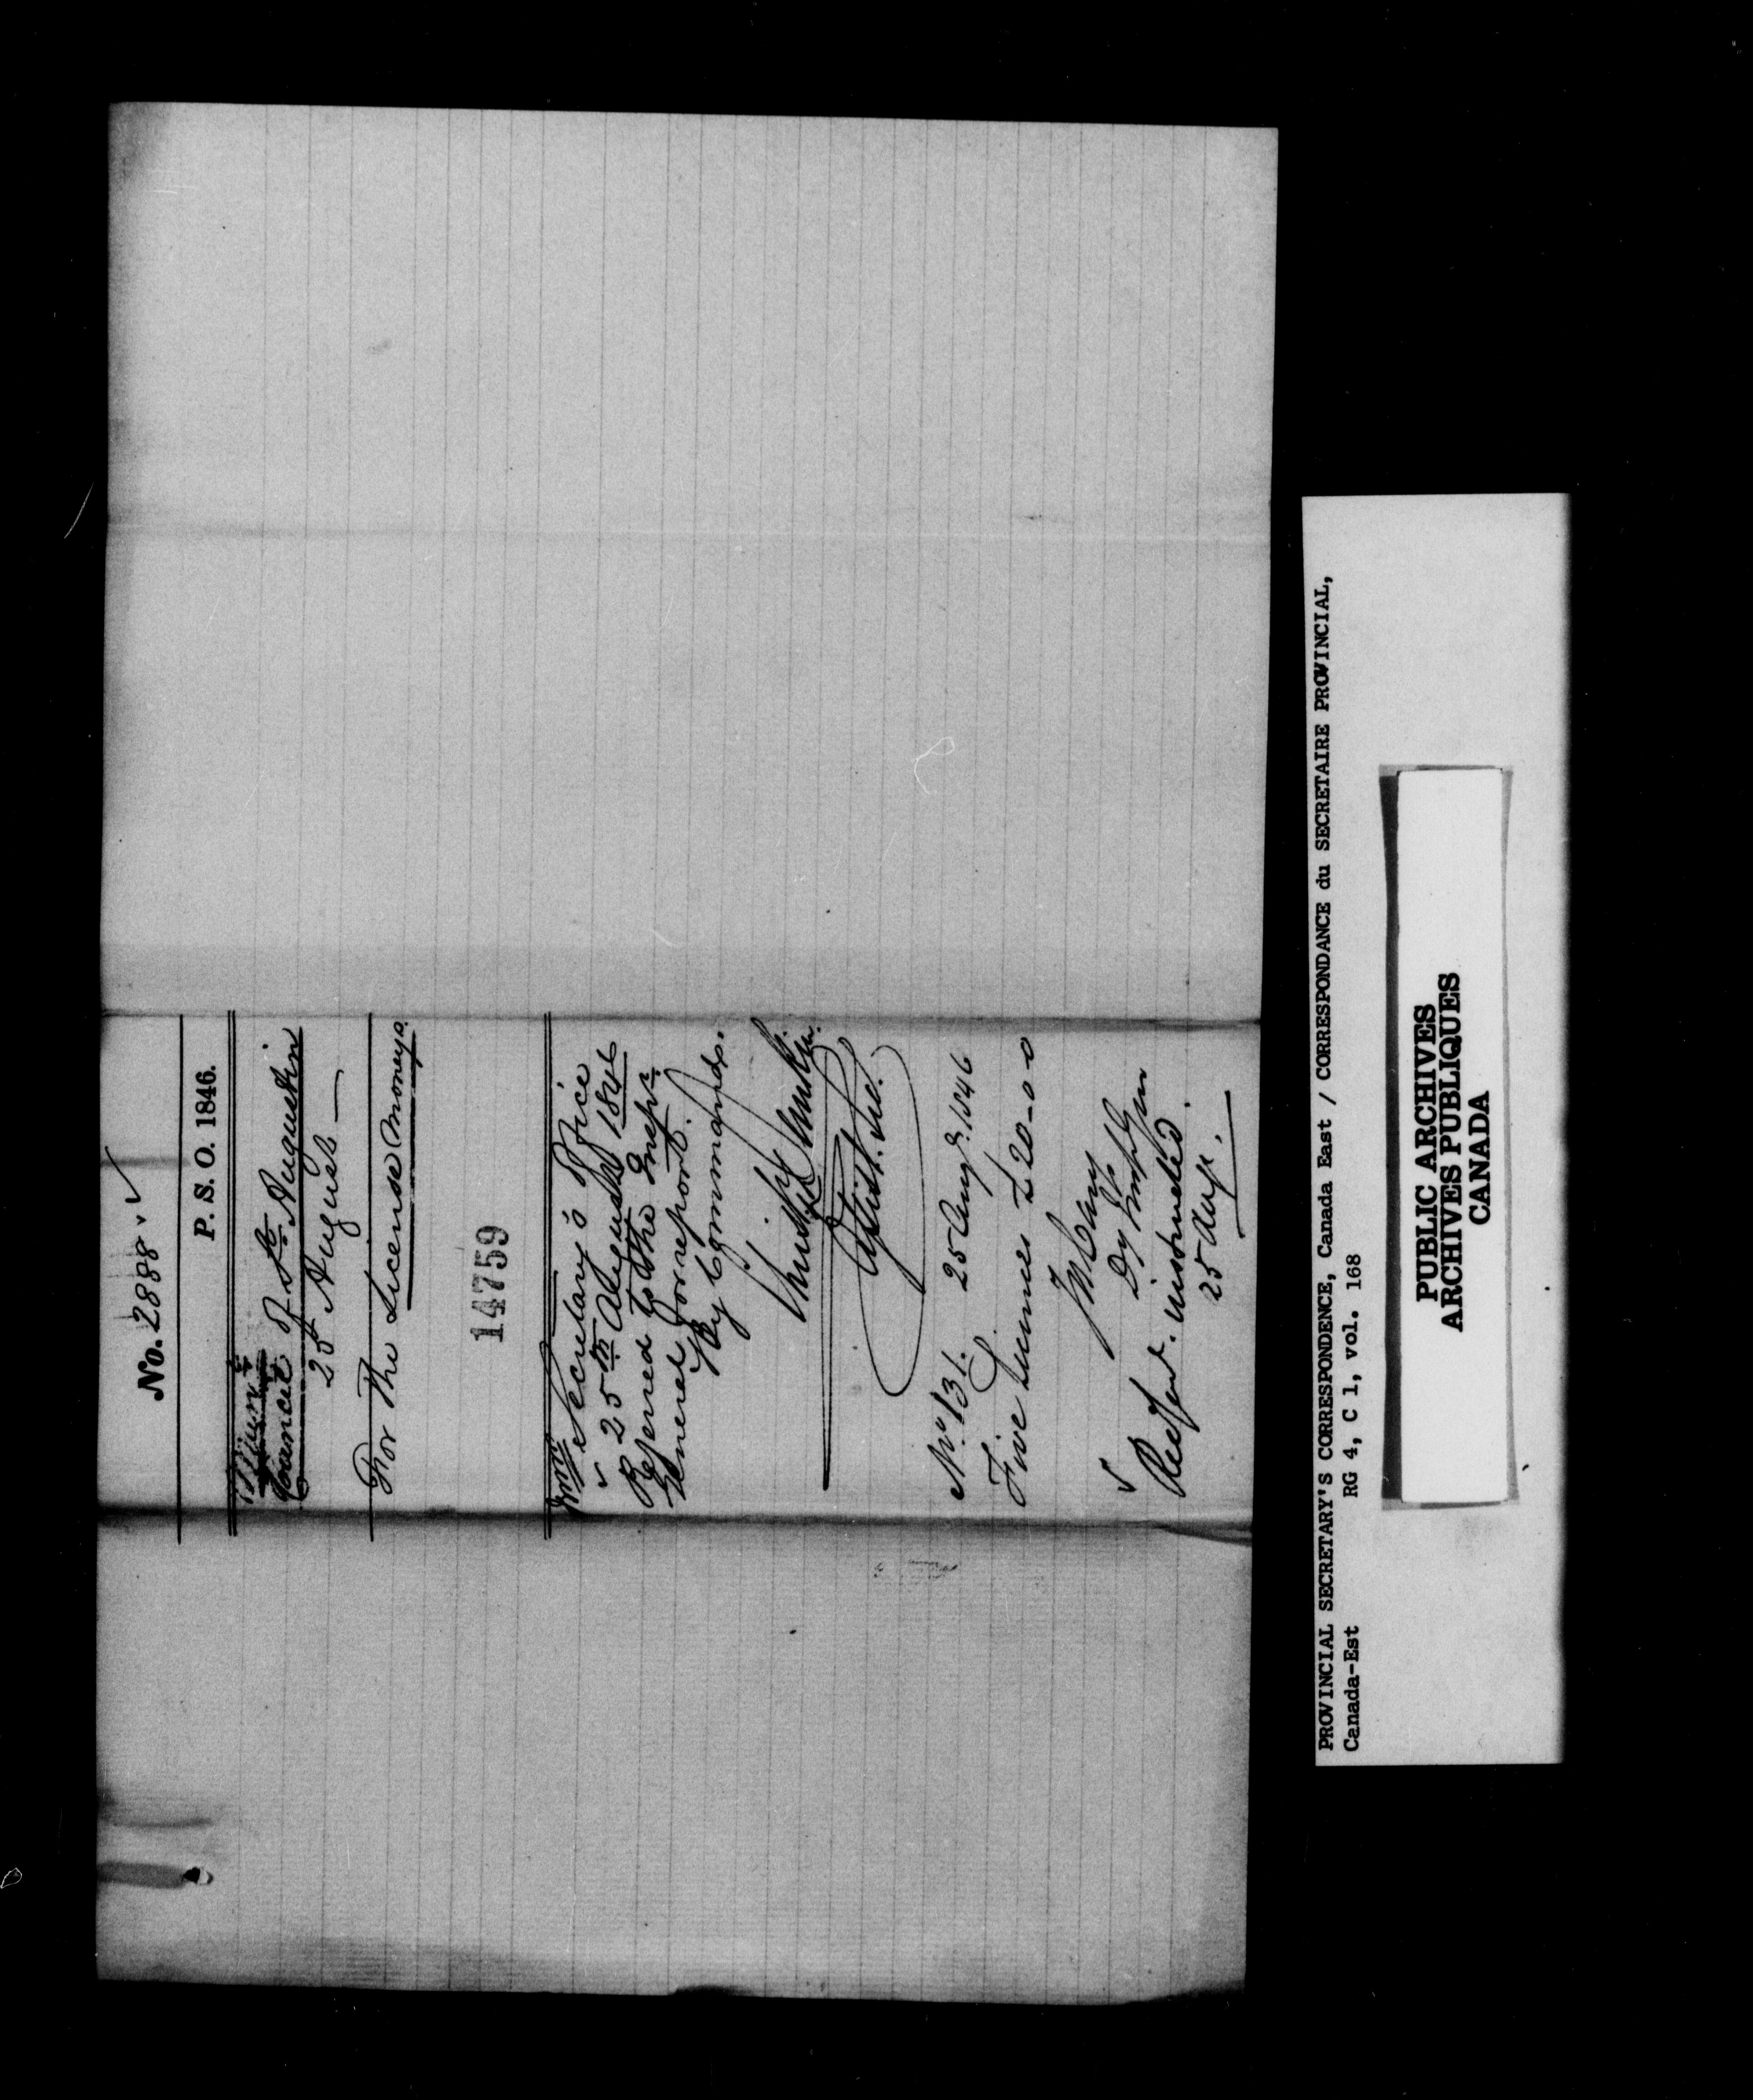 No. 2888. ✓
P. S. O. 1846.
Council of St. Augustin
25 August —
For the License Moneys.
14759
Secretary's Office
✓ 25th August 1846
Referred to the Inspr.
General for report.
By Command.
Asist. Sec.
No. 131. 25 Augt. 1846
Five Licenses £20-0-0
Dy Inspr Gen
✓
instructed.
25 Aug.
PROVINCIAL SECRETARY'S CORRESPONDENCE, Canada East / CORRESPONDANCE du SECRETAIRE PROVINCIAL,
Canada-Est RG 4, C 1, vol. 168
PUBLIC ARCHIVES
ARCHIVES PUBLIQUES
CANADA